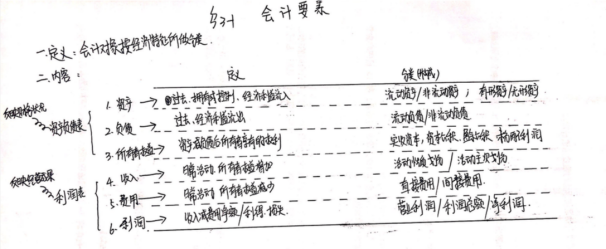 §3-1 会计要素
一.定义：会计对象按经济特征所做分类.
二.内容：
定义 分类(构成)
反映财务状况
⇒资产负债表
1. 资产 → 过去、拥有或控制、经济利益流入 流动资产/非流动资产； 有形资产/无形资产
2. 负债 → 过去、经济利益流出 流动负债/非流动负债
3. 所有者权益 → 资产减负债后所有者享有的权利 实收资本，资本公积，盈余公积，未分配利润
反映经营成果
⇒利润表
4. 收入 → 日常活动 所有者权益增加
5. 费用 → 日常活动 所有者权益减少 直接费用/间接费用.
6. 利润 → 收入减费用净额/利得、损失. 营业利润/利润总额/净利润.